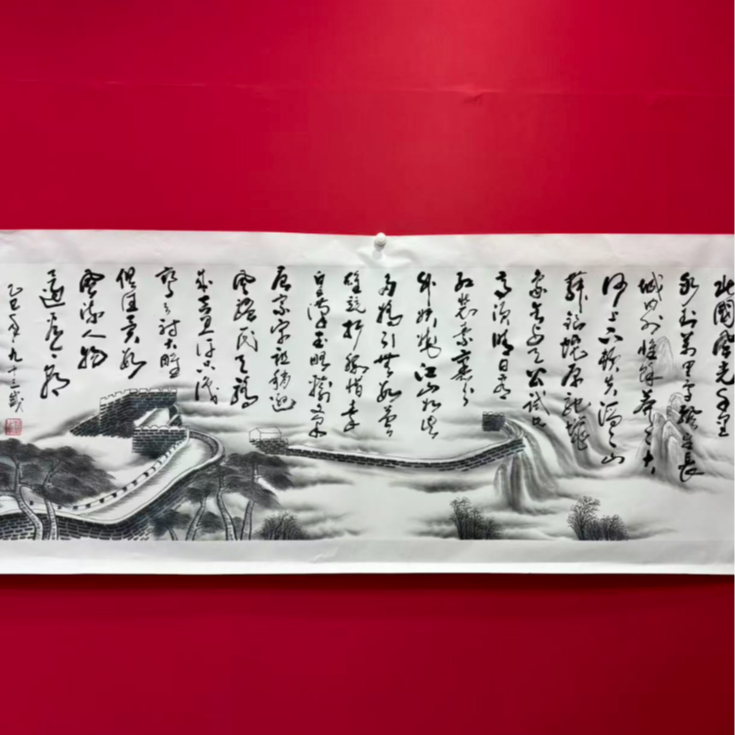 北國風光千里
冰封萬里雪飄望長
城内外惟餘莽莽大
河上下頓失滔滔山
舞銀蛇原馳蠟
象欲與天公試比
高須晴日看
紅裝素裹分
外妖嬈江山如此
多嬌引無數英
雄競折腰惜秦
皇漢武略輸文采
唐宗宋祖稍遜
風騷一代天驕
成吉思汗只識
彎弓射大雕
俱往矣數
風流人物
還看今朝
乙巳年九十三歲